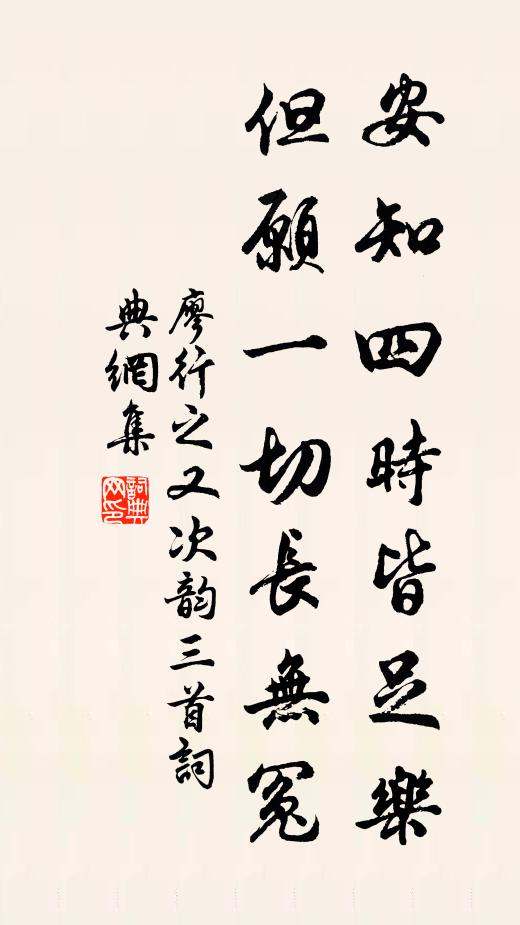 安知四時皆足樂
但願一切長無冤
廖行之又次韵三首詞
典網集
詞典网印